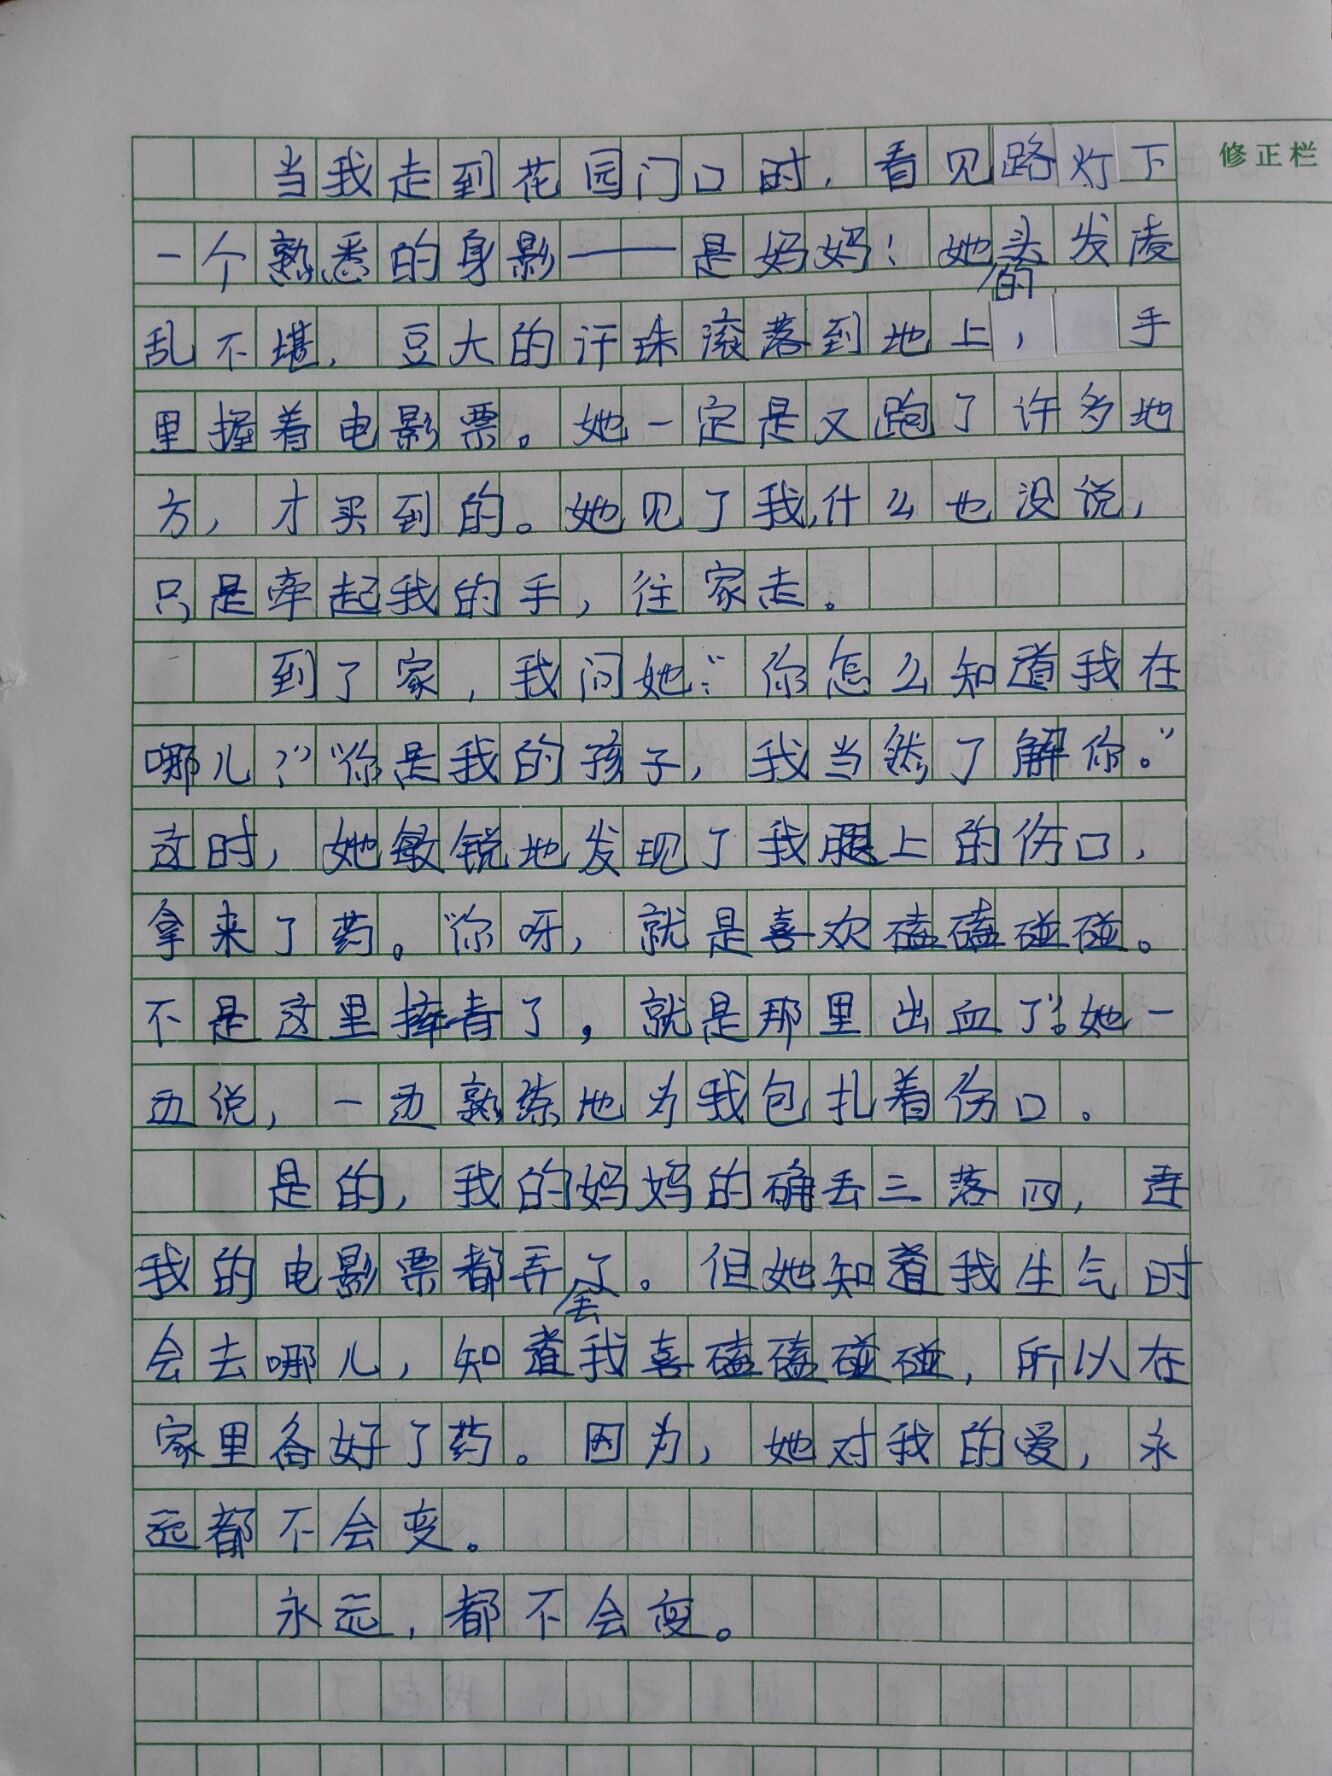 修正栏
当我走到花园门口时，看见路灯下
一个熟悉的身影——是妈妈！她的头发凌
乱不堪，豆大的汗珠滚落到地上，手
里握着电影票。她一定是又跑了许多地
方，才买到的。她见了我，什么也没说，
只是牵起我的手，往家走。
到了家，我问她：“你怎么知道我在
哪儿？”“你是我的孩子，我当然了解你。”
这时，她敏锐地发现了我腿上的伤口，
拿来了药。“你呀，就是喜欢磕磕碰碰。
不是这里摔青了，就是那里出血了。”她一
边说，一边熟练地为我包扎着伤口。
是的，我的妈妈的确丢三落四，连
我的电影票都弄丢了。但她知道我生气时
会去哪儿，知道我会喜磕磕碰碰，所以在
家里备好了药。因为，她对我的爱，永
远都不会变。
永远，都不会变。